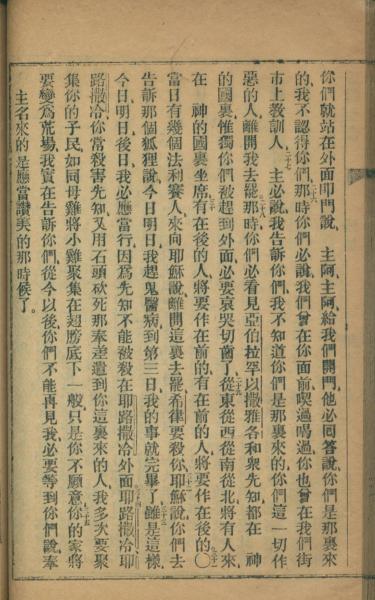 你們就站在外面叩門說、主阿、主阿、給我們開門、他必回答說、你們是那裏來
的、我不認得你們、二十六那時你們必說、我們曾在你面前喫過喝過、你也曾在我們街
市上教訓人、二十七主必說、我告訴你們、我不知道你們是那裏來的、你們這一切作
惡的人、離開我去罷、二十八那時你們必看見亞伯拉罕、以撒、雅各、和眾先知、都在 神
的國裏、惟獨你們被趕到外面、必要哀哭切齒了、二十九從東從西、從南從北、將有人來、
在 神的國裏坐席、三十有在後的人、將要作在前的、有在前的人、將要作在後的〇三十一
當日有幾個法利賽人、來向耶穌說、離開這裏去罷、希律要殺你、三十二耶穌說、你們去
告訴那個狐狸說、今日明日、我趕鬼醫病、到第三日、我的事就完畢了、三十三雖是這樣、
今日明日後日、我必應當行、因爲先知不能被殺在耶路撒冷外面、三十四耶路撒冷、耶
路撒冷、你常殺害先知、又用石頭砍死那奉差遣到你這裏來的人、我多次要聚
集你的子民、如同母雞將小雞聚集在翅膀底下一般、只是你不願意、三十五你的家將
要變爲荒場、我實在告訴你們、從今以後、你們不能再見我、必要等到你們說、奉
主名來的、是應當讚美的那時候了。